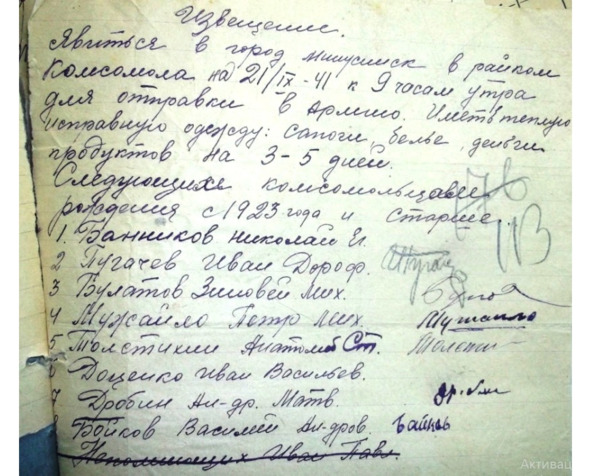 Извещение.
Явиться в город Минусинск в райком
Комсомола на 21/IX-41 к 9 часам утра
для отправки в Армию. Иметь теплую
исправную одежду: сапоги, белье, деньги
продуктов на 3-5 дней.
Следующих комсомольцев
рождения с 1923 года и старше.
1. Банников Николай Ег.
2 Пугачев Иван Дороф.
3 Булатов Зиновей Мих.
4 Мужайло Петр Мих. Мужайло
5 Толстихин Анатолий Ст. Толсти
6 Доценко Иван Васильев.
7 Дробин Ал-др. Матв.
8 Бойков Василий Ал-дров.
Непомнющих Иван Павл.
Активац